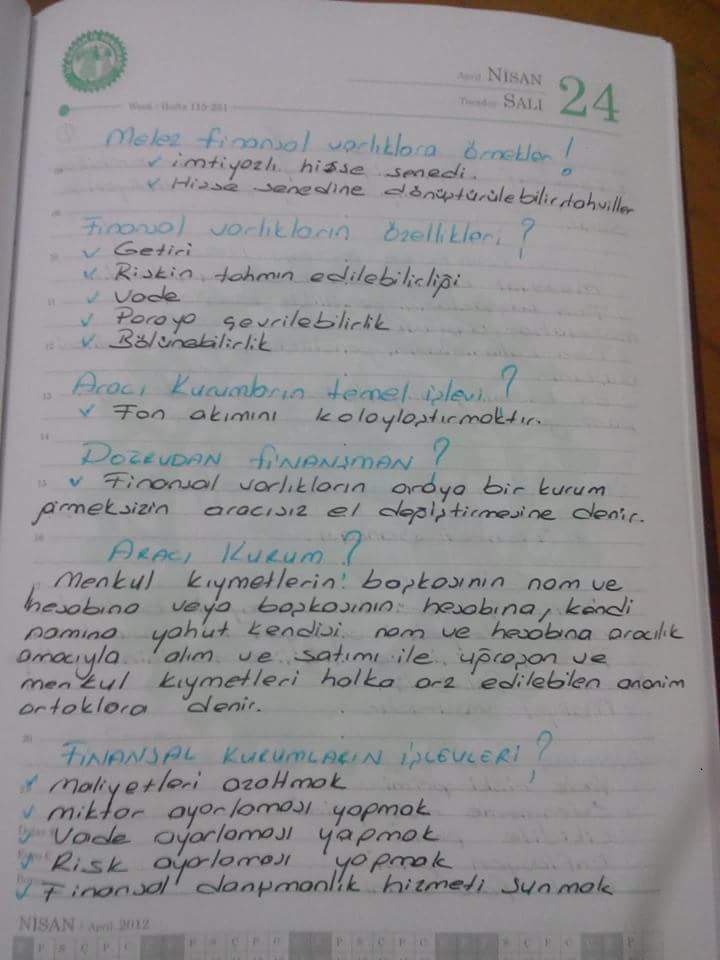 April NİSAN
Tuesday SALI 24
Week - Hafta 115-251
Melez finansal varlıklara örnekler!
✓ imtiyazlı hisse senedi.
✓ Hisse senedine dönüştürülebilir tahviller
Finansal varlıkların özellikleri?
✓ Getiri
✓ Riskin tahmin edilebilirliği
11 ✓ Vade
✓ Paraya çevrilebilirlik
12 ✓ Bölünebilirlik
13 Aracı Kurumların temel işlevi?
✓ Fon akımını kolaylaştırmaktır.
14
DOĞRUDAN FİNANSMAN?
15 ✓ Finansal varlıkların araya bir kurum
girmeksizin aracısız el değiştirmesine denir.
16
ARACI KURUM?
Menkul kıymetlerin başkasının nam ve
hesabına veya başkasının hesabına, kendi
namına yahut kendisi nam ve hesabına aracılık
amacıyla alım ve satımı ile uğraşan ve
menkul kıymetleri halka arz edilebilen anonim
ortaklara denir.
20
FİNANSAL KURUMLARIN İŞLEVLERİ?
✓ Maliyetleri azaltmak
✓ miktar ayarlaması yapmak
✓ Vade ayarlaması yapmak
✓ Risk ayarlaması yapmak
✓ Finansal danışmanlık hizmeti sunmak
NİSAN - April 2012
P S Ç P C